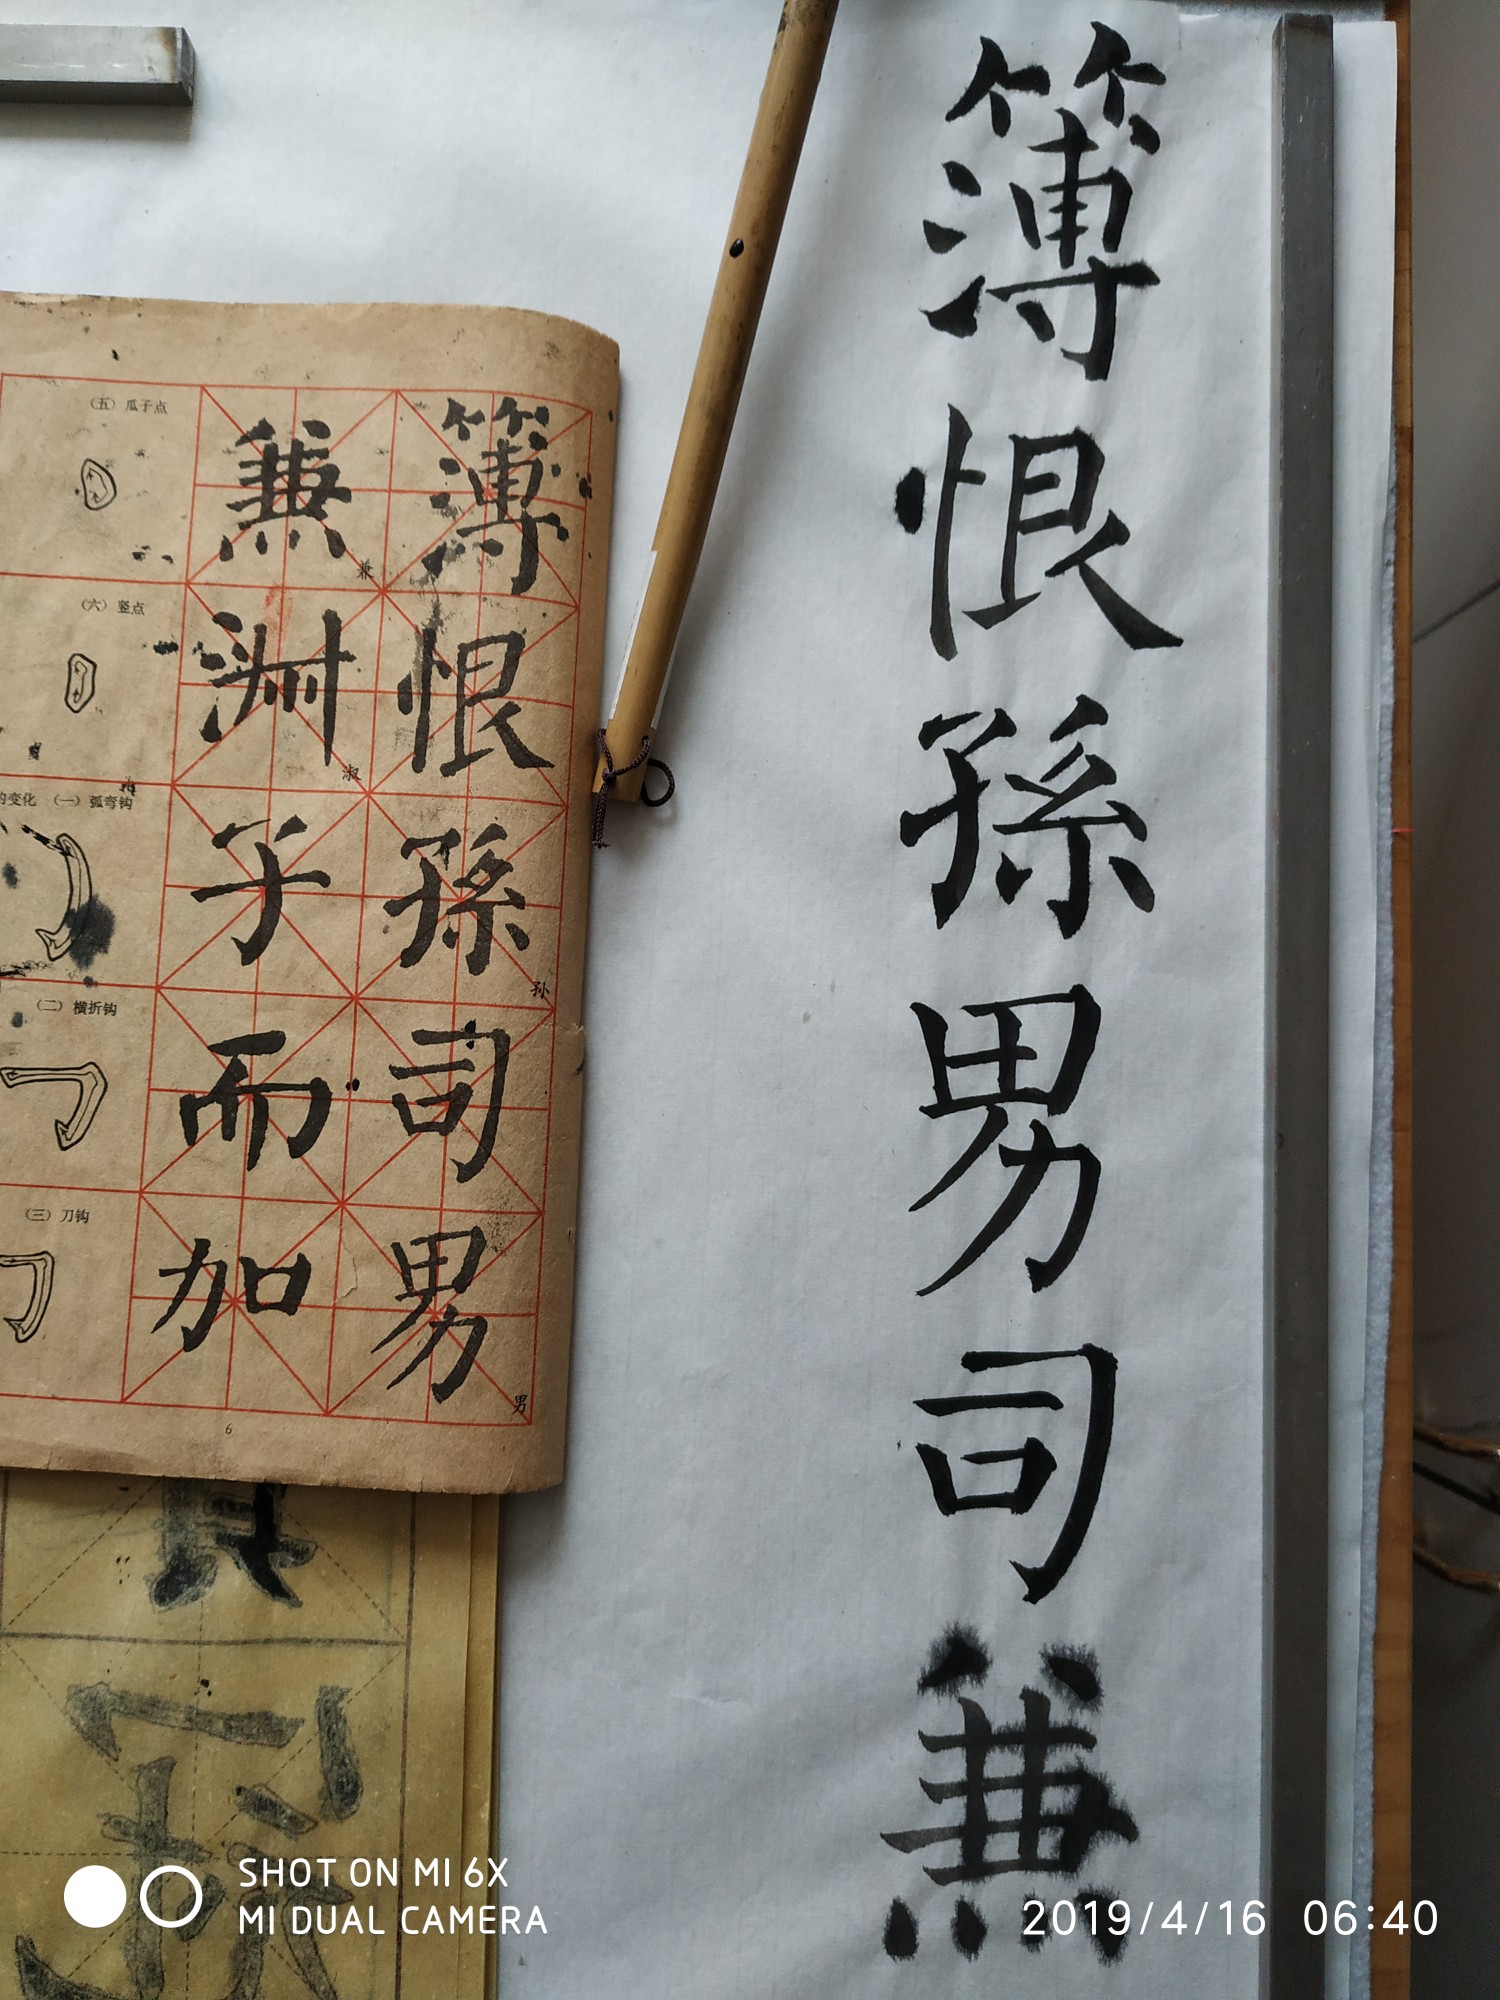 簿恨孫男司兼
簿恨孫司男
孙
男
兼淑子而加
兼
淑
（五）瓜子点
（六）竖点
的变化 （一）弧弯钩
（二）横折钩
（三）刀钩
6
SHOT ON MI 6X
MI DUAL CAMERA
2019/4/16 06:40